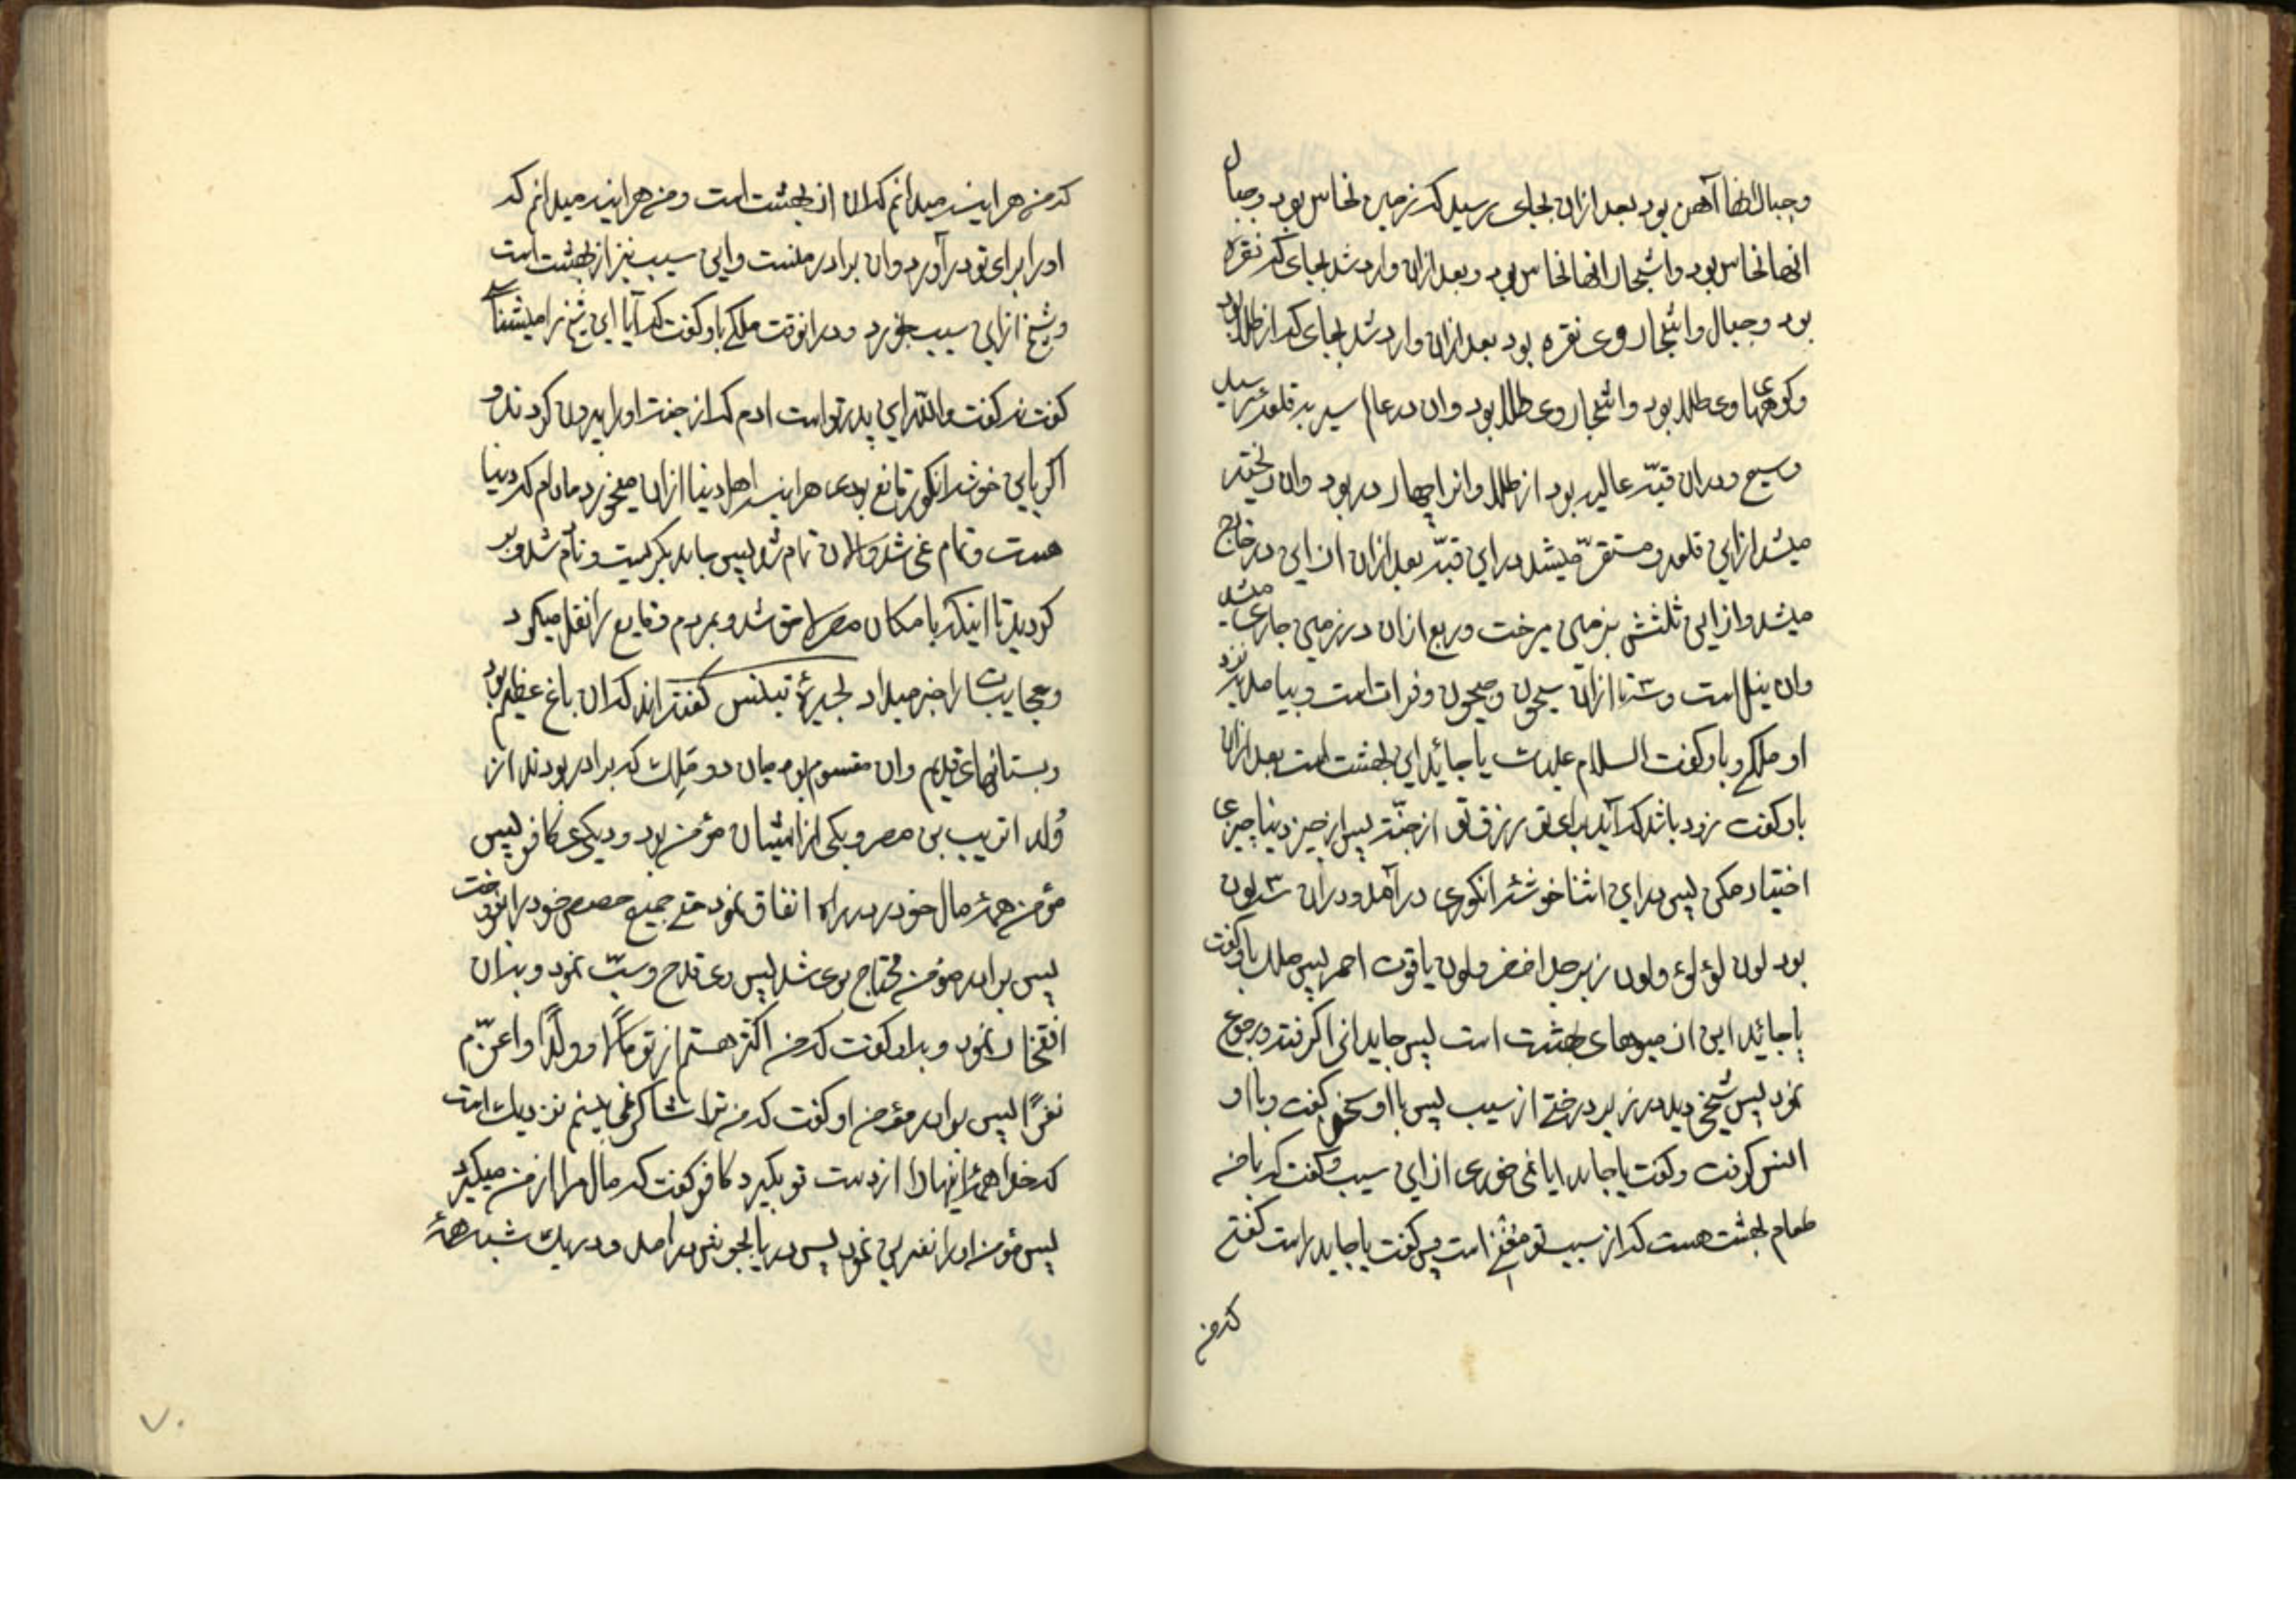 وجبال انها آهن بود بعد ازان بجای رسید که زمین نحاس بود وجبال
انها نحاس بود واشجار انها نحاس بود وبعد ازان وارد شد بجای که نقره
بود وجبال واشجار وی نقره بود بعد ازان وارد شد بجای که از طلا بود
وکوههای وی طلا بود واشجار وی طلا بود وان در عالم سید به قلعه رسید
وسیع ودران قبّه عالیه بود از طلا وانرا چهار در بود وان ریخته
میشد ازاین قلعه ومستقرّ میشد در این قبّه بعد ازان از این در خارج
میشد وازاین ثلثش بزمین میرخت وربع ازان در زمین جاری میشد
وان نیل است وسه تا ازان سیحون وجیحون وفرات است وبیامد نزد
او ملکی وباو کفت السلام علیک یا جائد این بهشت است بعد ازان
باو کفت زود باشد که آید برای تو رزق تو از جنّت پس از چیز دنیا چیزی
اختیار مکن پس در این اثنا خوشهٔ انکوری در آمد ودران سه لون
بود لون لؤلؤ ولون زبرجد اخضر ولون یاقوت احمر پس ملک باو کفت
یا جائد این از میوهای بهشت است پس جاید انرا کرفته ورجوع
نمود پس شیخی دید در زیر درختی از سیب پس با او سخن کفت وبا او
انس کرفت وکفت یا جاید ایا نمی خوری از این سیب وکفت که با من
طعام بهشت هست که از سیب تو مغنی است پس کفت یا جاید راست کفتی
که من
که من هراینه میدانم که ان از بهشت است ومن هراینه میدانم که
او را برای تو در آورد وان برادر منست واین سیب نیز از بهشت است
وشیخ ازاین سیب بخورد ودر انوقت ملکی باو کفت که آیا این شیخ را میشناسی
کفت نه کفت والله این پدر تو است ادم که از جنت او را بیرون کردند و
اکر باین خوشه انکور قانع بودی هراینه اهل دنیا ازان میخوردند مادام که دنیا
هست وتمام نمی شد والان تمام شد پس جاید بکریست ونادم شد وبر
کردید تا اینکه بامکان مصر لاحق شد وبمردم وقایع را نقل میکرد
وعجایب را خبر میداد بحیرهٔ تینس کفته اند که ان باغ عظیم بود
وبستانهای قدیم وان مقسوم بود میان دو ملک که برادر بودند از
ولد اتریب بن مصر ویکی از ایشان مؤمن بود ودیکری کافر پس
مؤمن همهٔ مال خود در راه انفاق نمود حتی جمیع حصص خود را بفروخت
پس برادر مؤمن محتاج بوی شد پس وی قدح وسبّ نمود وبدان
افتخار نمود وبدو کفت که من اکثر هستم از تو مالًا وولدًا واعزّم
نفرًا پس برادر مؤمن او کفت که من ترا شاکر نمی بینم نزدیک است
که خدا همهٔ اینها را از دست تو بکیرد کافر کفت که مال مرا از من میکیرد
پس مؤمن او را نفرین نمود پس دریا بجوش در امد ودر یک شب همهٔ
۷۰